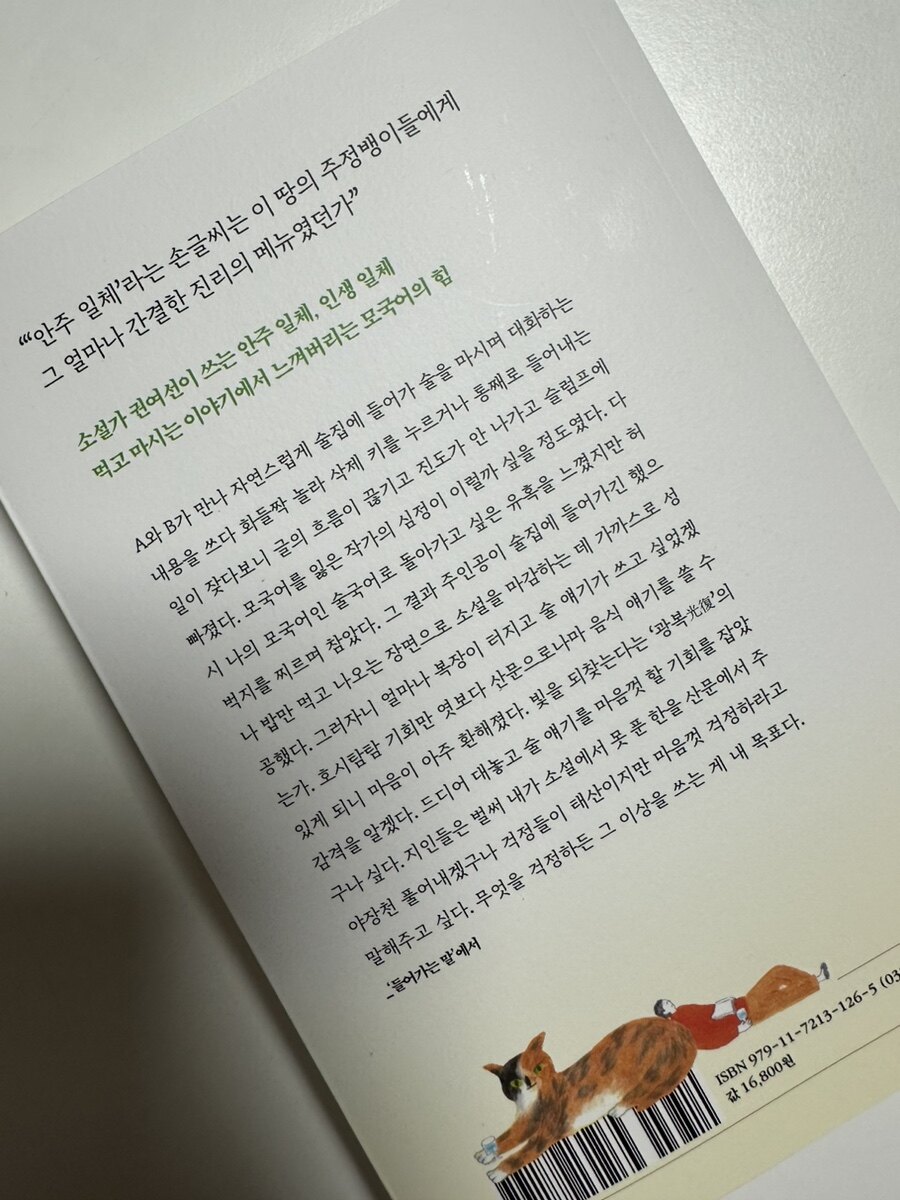 “‘안주 일체’라는 손글씨는 이 땅의 주정뱅이들에게
그 얼마나 간결한 진리의 메뉴였던가”
소설가 권여선이 쓰는 안주 일체, 인생 일체
먹고 마시는 이야기에서 느껴버리는 모국어의 힘
A와 B가 만나 자연스럽게 술집에 들어가 술을 마시며 대화하는
내용을 쓰다 화들짝 놀라 삭제 키를 누르거나 통째로 들어내는
일이 잦다보니 글의 흐름이 끊기고 진도가 안 나가고 슬럼프에
빠졌다. 모국어를 잃은 작가의 심정이 이럴까 싶을 정도였다. 다
시 나의 모국어인 술국어로 돌아가고 싶은 유혹을 느꼈지만 허
벅지를 찌르며 참았다. 그 결과 주인공이 술집에 들어가긴 했으
나 밥만 먹고 나오는 장면으로 소설을 마감하는 데 가까스로 성
공했다. 그러자니 얼마나 복장이 터지고 술 얘기가 쓰고 싶었겠
는가. 호시탐탐 기회만 엿보다 산문으로나마 음식 얘기를 쓸 수
있게 되니 마음이 아주 환해졌다. 빛을 되찾는다는 ‘광복光復’의
감격을 알겠다. 드디어 대놓고 술 얘기를 마음껏 할 기회를 잡았
구나 싶다. 지인들은 벌써 내가 소설에서 못 푼 한을 산문에서 주
야장천 풀어내겠구나 걱정들이 태산이지만 마음껏 걱정하라고
말해주고 싶다. 무엇을 걱정하든 그 이상을 쓰는 게 내 목표다.
_‘들어가는 말’에서
ISBN 979-11-7213-126-5 (03
값 16,800원